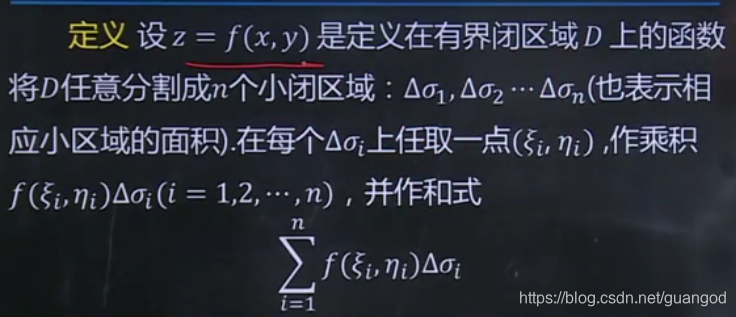 定义 设 z = f(x, y) 是定义在有界闭区域 D 上的函数
将D任意分割成n个小闭区域：Δσ₁, Δσ₂ ⋯ Δσₙ(也表示相
应小区域的面积).在每个Δσᵢ上任取一点(ξᵢ, ηᵢ) ,作乘积
f(ξᵢ, ηᵢ)Δσᵢ(i = 1,2, ⋯, n)，并作和式
∑ᵢ₌₁ⁿ f(ξᵢ, ηᵢ)Δσᵢ
https://blog.csdn.net/guangod